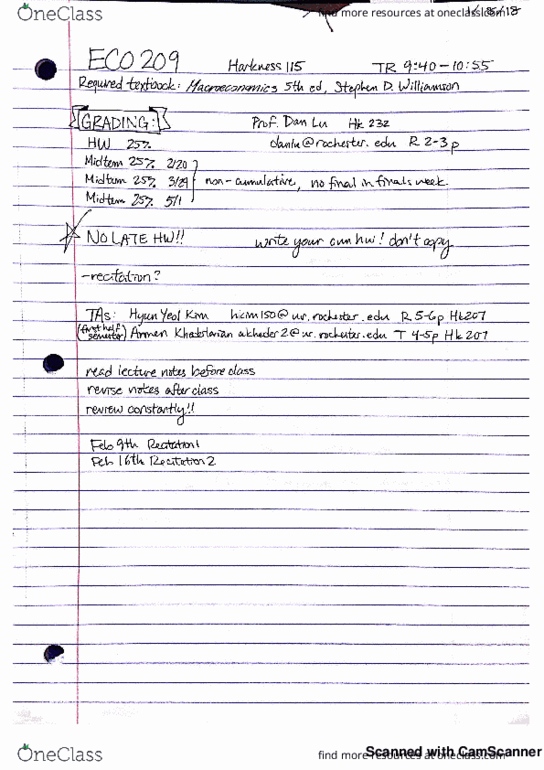 OneClass
find more resources at oneclass.com
1/18/18
ECO 209 Harkness 115 TR 9:40-10:55
Required textbook: Macroeconomics 5th ed, Stephen D. Williamson
GRADING: Prof. Dan Lu Hk 232
HW 25% danlu@rochester.edu R 2-3p
Midterm 25% 2/20
Midterm 25% 3/29 non-cumulative, no final in finals week.
Midterm 25% 5/1
NO LATE HW!! write your own hw! don't copy
-recitation?
TAs: Hyun Yeol Kim hkim150@ur.rochester.edu R 5-6p Hk207
(first half semester) Armen Khederlarian akheder2@ur.rochester.edu T 4-5p Hk 207
read lecture notes before class
revise notes after class
review constantly!!
Feb 9th Recitation 1
Feb 16th Recitation 2
OneClass
find more resources at oneclass.com
Scanned with CamScanner